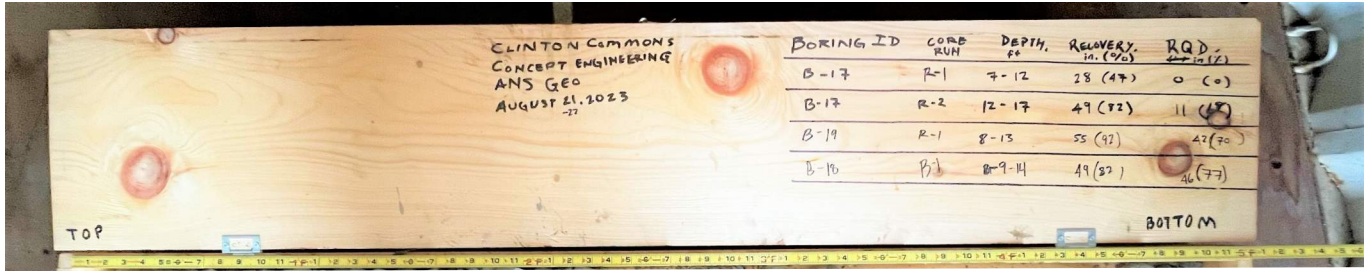 CLINTON COMMONS
CONCEPT ENGINEERING
ANS GEO
AUGUST 21, 2023
-22
BORING ID CORE RUN DEPTH, ft RECOVERY, in. (%) RQD, in (%)
B-17 R-1 7-12 28 (47) 0 (0)
B-17 R-2 12-17 49 (82) 11
B-19 R-1 8-13 55 (92) 42 (70)
B-18 9-14 49 (82) 46 (77)
TOP
BOTTOM